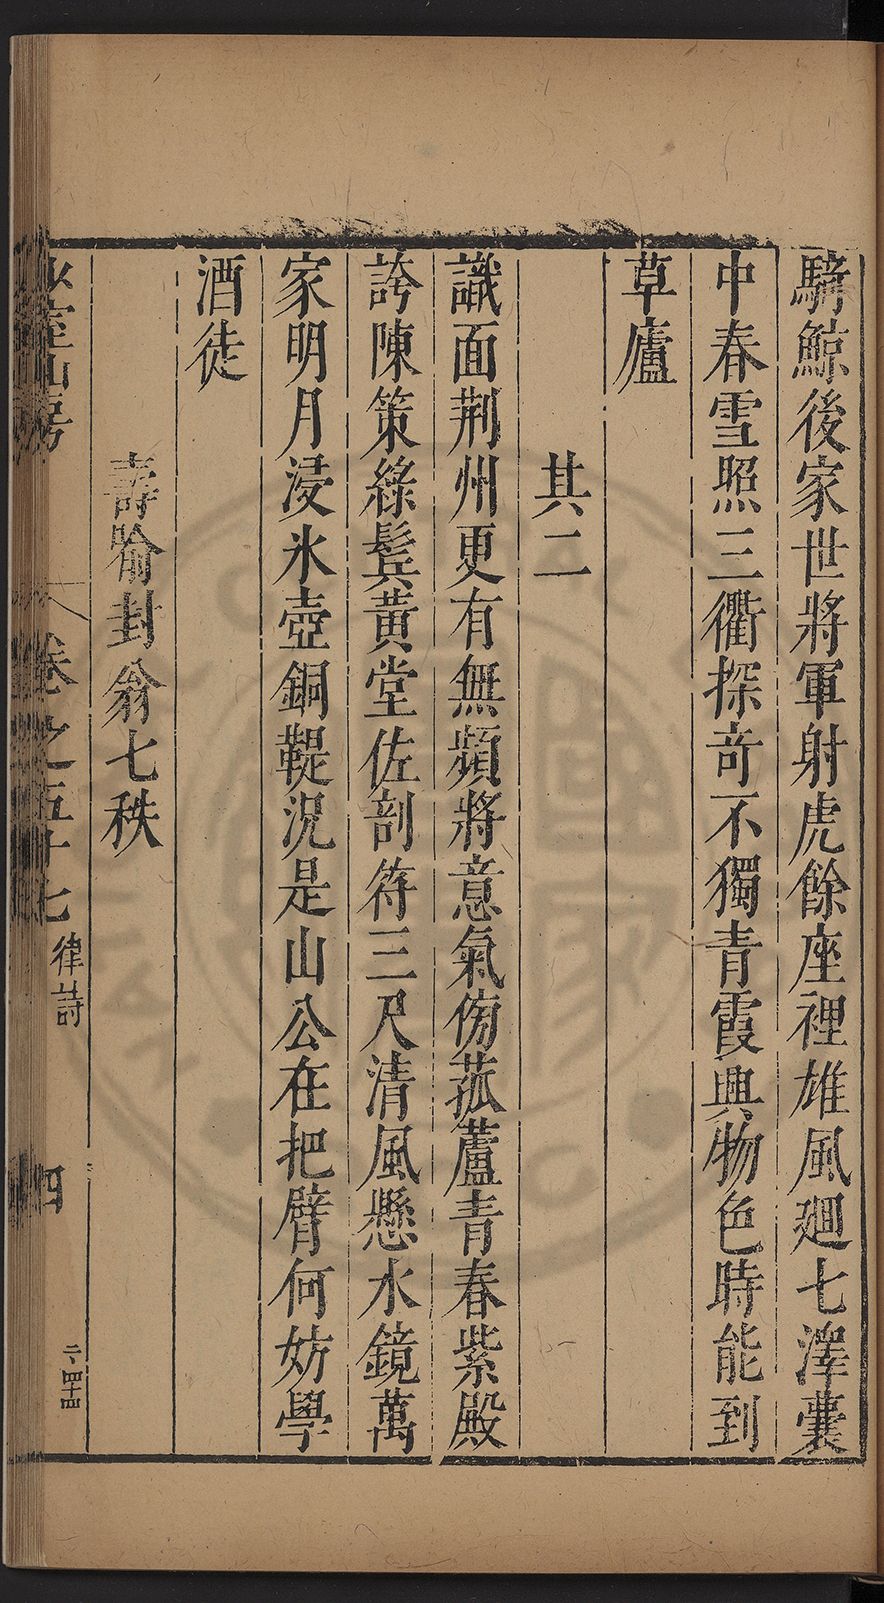 騎鯨後家世將軍射虎餘座裡雄風迴七澤囊
中春雪照三衢探奇不獨青霞興物色時能到
草廬
其二
識面荆州更有無頻將意氣傍菰蘆青春紫殿
誇陳策綠鬂黃堂佐剖符三尺清風懸水鏡萬
家明月浸氷壺銅鞮況是山公在把臂何妨學
酒徒
壽喻封翁七秩
少室山房
卷之五十七
律詩
四
六四十四